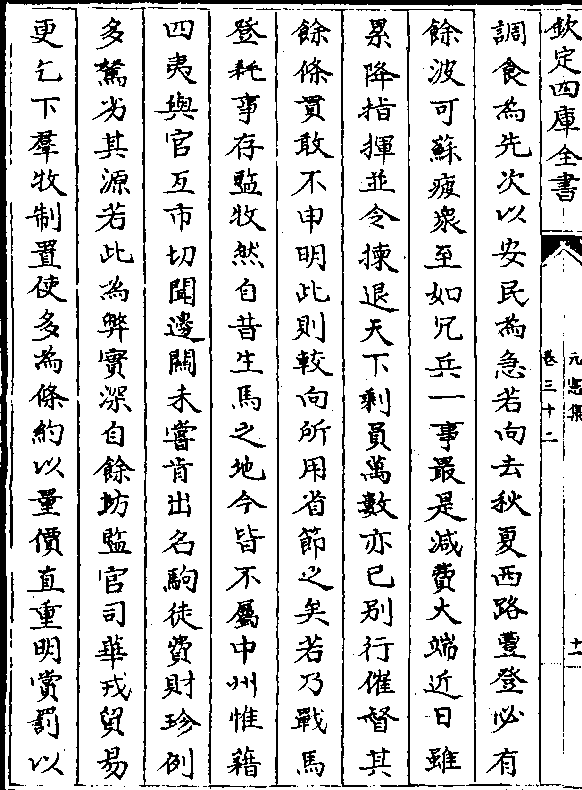 欽定四庫全書
元憲集
卷三十二
十一
調食為先次以安民為急若向去秋夏西路豐登必有
餘波可蘇疲衆至如冗兵一事最是減費大端近日雖
累降指揮並令揀退天下剩員萬數亦已别行催督其
餘條貫敢不申明此則較向所用省節之矣若乃戰馬
登耗事存監牧然自昔生馬之地今皆不屬中州惟藉
四夷與官互市切聞邊關未嘗肯出名駒徒費財珍例
多駑劣其源若此為弊實深自餘坊監官司華戎貿易
更乞下羣牧制置使多為條約以量價直重明賞罰以